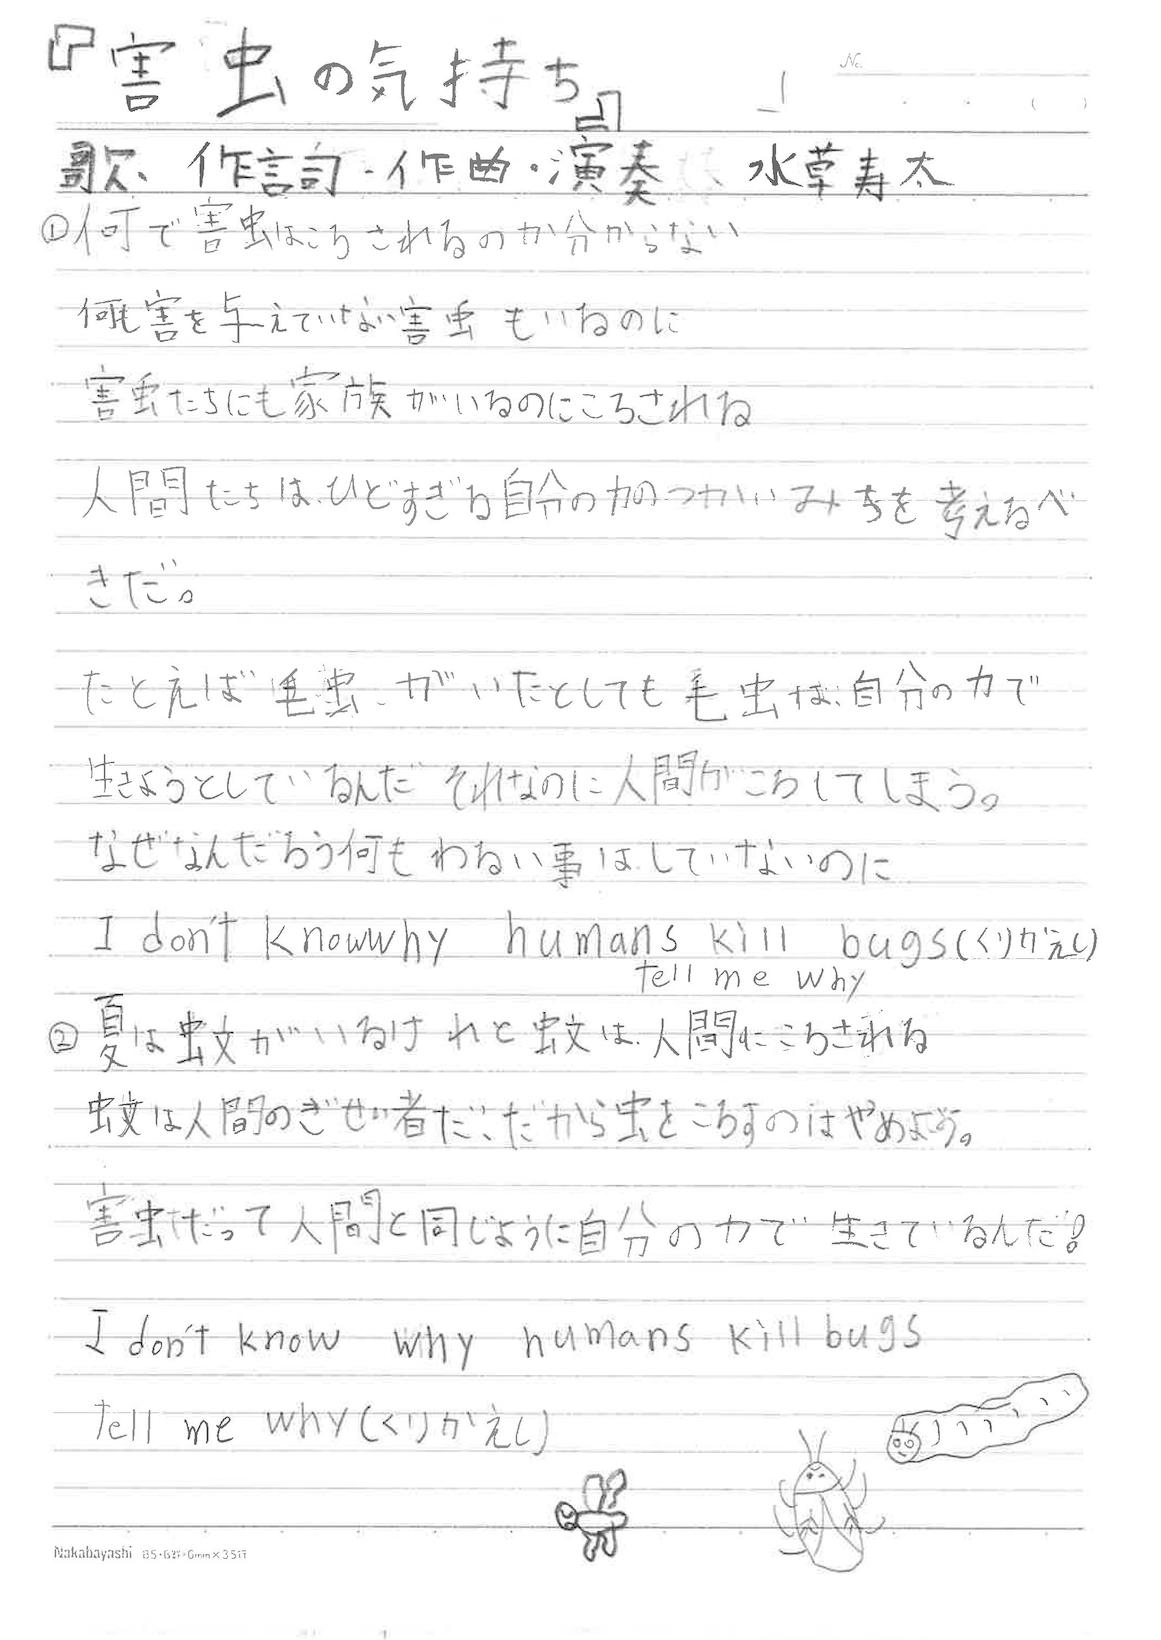 『害虫の気持ち』
No.
歌、作詞・作曲・演奏、水草寿太
①何で害虫はころされるのか分からない
何も害を与えていない害虫もいるのに
害虫たちにも家族がいるのにころされる
人間たちは、ひどすぎる自分の力のつかいみちを考えるべ
きだ。
たとえば毛虫、がいたとしても毛虫は、自分の力で
生きようとしているんだ それなのに人間がころしてしまう。
なぜなんだろう何もわるい事はしていないのに
I don't know why humans kill bugs(くりかえし)
tell me why
②夏は蚊がいるけれど蚊は人間にころされる
蚊は人間のぎせい者だ、だから虫をころすのはやめよう。
害虫だって人間と同じように自分の力で生きているんだ!
I don't know why humans kill bugs
tell me why(くりかえし)
Nakabayashi B5・6ミリ・6mm×35行